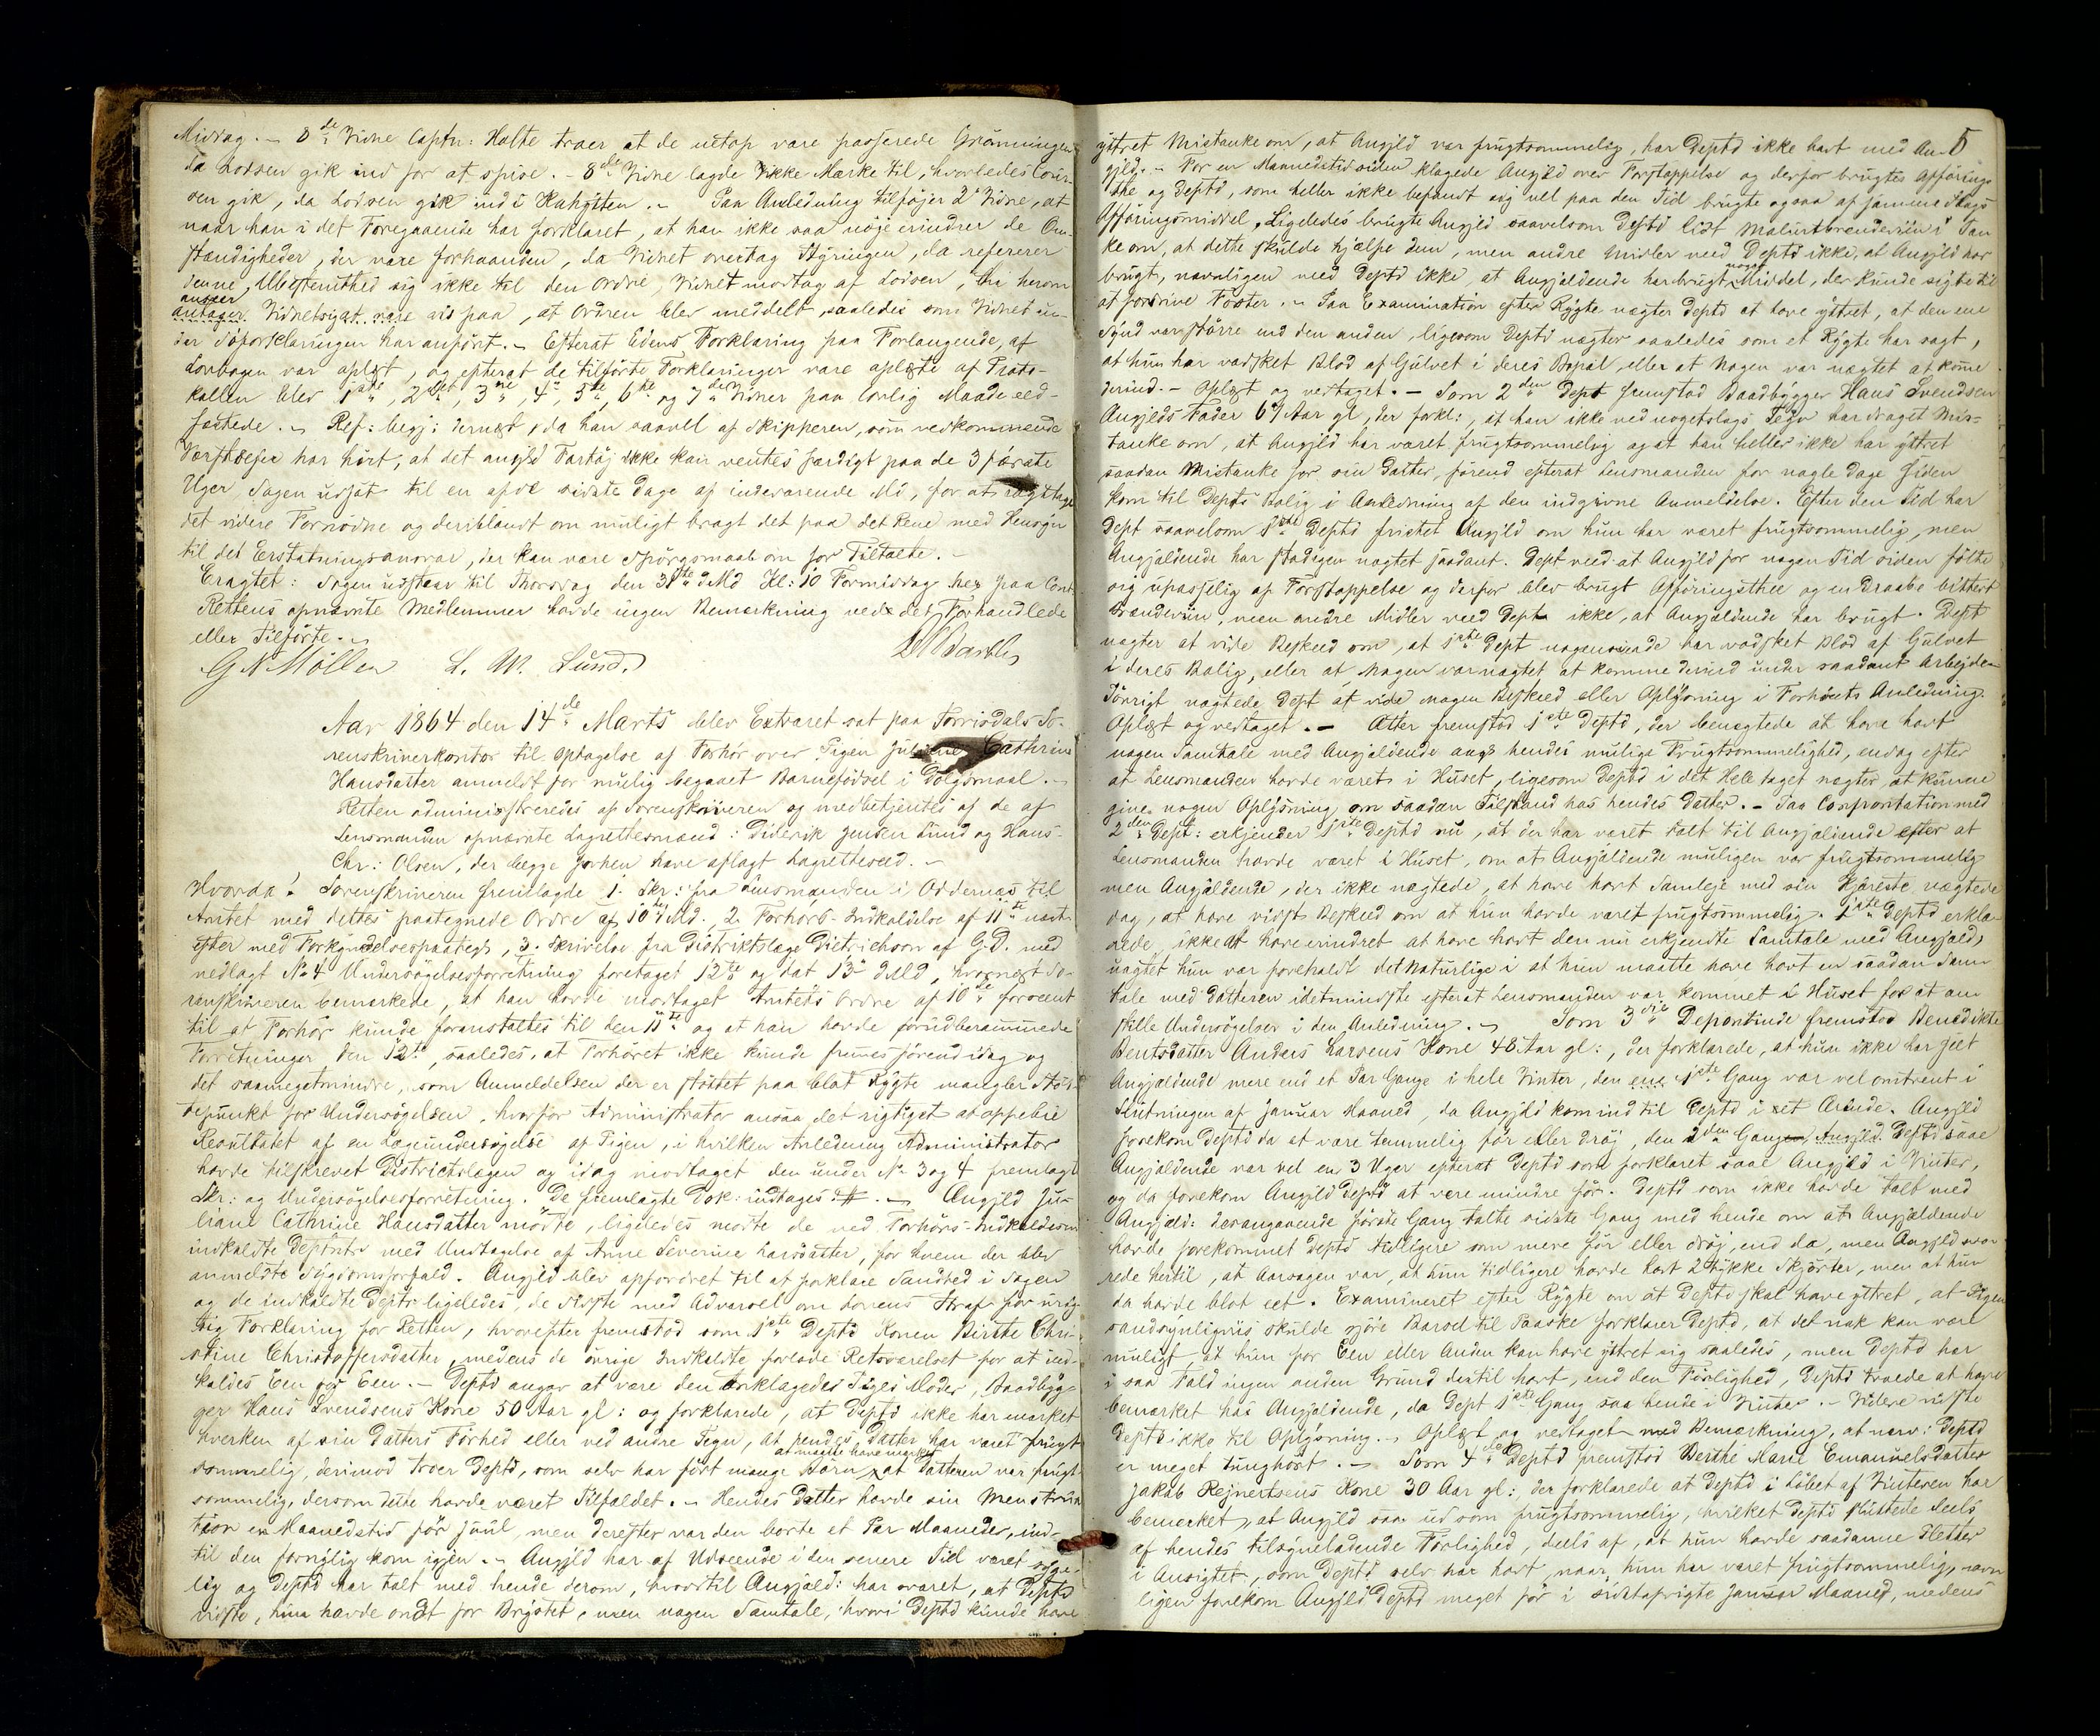 Middag. – 3de Vidne Captn: Holte troer at de netop vare passerede Grønningen
da Lodsen gik ind for at spise. – 3de Vidne lagde ikke Mærke til, hvorledes Cour-
sen gik, da Lodsen gik ind i Kahytten. – Paa Anledning tilføjer 2det Vidne, at
naar han i det Foregaaende har forklaret, at han ikke saa nøje erindrer de Om-
stændigheder, der vare forhaanden, da Vidnet overtog Styringen, da refererer
denne Ubestemthed sig ikke til den Ordre, Vidnet modtog af Lodsen, thi herom
anseer
antager Vidnet sig at være vis paa, at Ordren blev meddelt saaledes som Vidnet un-
der Søforklaringen har anført. – Efterat Edens Forklaring paa Forlangende, af
Lovbogen var oplæst, og efterat de tilførte Forklaringer vare oplæste af Proto-
kollen blev 1ste, 2det, 3die, 4de, 5te, 6te og 7de Vidner paa lovlig Maade eed-
fæstede. – Ref: begj: dernæst, da han saavel af Skipperen, som vedkommende
Værftseier har hørt, at det angjd Fartøj ikke kan ventes færdigt paa de 3 første
Uger Sagen udsat til en af de sidste Dage af indeværende Md, for at iagttage
det videre Fornødne og deriblandt om muligt bragt det paa det Rene med Hensyn
til det Erstatningsansvar, der kan være Spørgsmaal om for Tiltalte. –
Eragtet: Sagen udstaar til Thorsdag den 31te d Md Kl: 10 Formiddag her paa Cont.
Rettens opnævnte Medlemmer havde ingen Bemærkning ved det Forhandlede
eller Tilførte. –
G N Møller L. W. Lund.
Aar 1864 den 14de Marts blev Extraret sat paa Torrisdals So-
renskriverkontor til Optagelse af Forhør over Pigen Juliane Cathrine
Hansdatter anmeldt for mulig begaaet Barnefødsel i Dølgsmaal. –
Retten administreredes af Sorenskriveren og medbetjentes af de af
Lensmanden opnævnte Lagrettesmænd: Diderik Jensen Lund og Hans
Chr: Olsen, der begge forhen have aflagt Lagretteseed. –
Hvorda: Sorenskriveren fremlagde 1. Skr: fra Lensmanden i Oddernæs til
Amtet med dettes paategnede Ordre af 10de d Md. 2. Forhørs-Indkaldelse af 11te næst-
efter med Forkyndelsespaategn, 3. Skrivelse fra Distriktslæge Dietrichson af G.D. med
vedlagt No 4 Undersøgelsesforretning foretaget 12te og dat 13de d Md, hvornæst So-
renskriveren bemærkede, at han havde modtaget Amtets Ordre af 10de
til at Forhør kunde foranstaltes til den 11te og at han havde forudberammede
Forretninger den 12te, saaledes, at Forhøret ikke kunde fremmes førend idag og
det saameget mindre, som Anmeldelsen der er støttet paa blot Rygte mangler Støt-
tepunkt for Undersøgelsen, hvorfor Administrator ansaa det rigtigst at oppebie
Resultatet af en Lægeundersøgelse af Pigen, i hvilken Anledning Administrator
havde tilskrevet Districtslægen og idag modtaget den under No 3 og 4 fremlagte
Skr: og Undersøgelsesforretning. De fremlagte Dok: indtages #. – Angjld Ju-
liane Cathrine Hansdatter mødte, ligeledes mødte de ved Forhørs-Indkaldelsen
indkaldte Depontr med Undtagelse af Anne Severine Larsdatter, for hvem der blev
anmeldte Sygdomsforfald. Angjld blev opfordret til at forklare Sandhed i Sagen
og de indkaldte Deptr ligeledes, de sidste med Advarsel om Lovens Straf for urig-
tig Forklaring for Retten, hvorefter fremstod som 1ste Deptd Konen Birthe Chri-
stine Christoffersdatter, medens de øvrige Indkaldte forlode Retsværelset for at ind-
kaldes Een for Een. – Deptd angav at være den anklagedes Piges Moder, Baadbyg-
ger Hans Svendsens Kone 50 Aar gl: og forklarede, at Deptd ikke har mærket
hverken af sin Datters Førhed eller ved andre Tegn, at hendes Datter har været frugt-
at maatte have mærket
sommelig, derimod troer Deptd, som selv har født mange Børn, at Datteren var frugt-
sommelig, dersom dette havde været Tilfældet. – Hendes Datter havde sin Menstrua-
tion en Maanedstid før Juul, men derefter var den borte et Par Maaneder, ind-
til den fornylig kom igjen. – Angjld har af Udseende i den senere Tid været syge-
lig og Deptd har talt med hende derom, hvortil Angjæld: har svaret, at Deptd
vidste, hun havde ondt for Brystet, men nogen Samtale, hvori Deptd kunde have
5
yttret Mistanke om, at Angjld var frugtsommelig, har Deptd ikke havt med An-
gjld. – For en Maanedstid siden klagede Angjld over Forstoppelse og derfor brugtes Afførings-
the og Deptd, som heller ikke befandt sig vel paa den Tid brugte ogsaa af samme Slags
Afføringsmiddel. Ligeledes brugte Angjld saavelsom Deptd lidt Malurtbrændeviin i Tan-
ke om, at dette skulde hjælpe dem, men andre Midler veed Deptd ikke, at Angjld har
brugt, navnligen veed Deptd ikke, at Angjældende har brugt noget Middel, der kunde sigte til
at fordrive Foster. – Paa Examination efter Rygte nægter Deptd at have yttret, at den ene
Synd var større end den anden, ligesom Deptd nægter saaledes som et Rygte har sagt,
at hun har vadsket Blod af Gulvet i deres Bopæl, eller at Nogen var nægtet at komme
derind. – Oplæst og vedtaget. – Som 2den Dept fremstod Baadbygger Hans Svendsen
Angjlds Fader 67 Aar gl, der forkl:, at han ikke ved nogetslags Tegn har draget Mis-
tanke om, at Angjld har været frugtsommelig og at han heller ikke har yttret
saadan Mistanke for sin Datter, førend efterat Lensmanden for nogle Dage siden
kom til Depts Bolig i Anledning af den indgivne Anmeldelse. Efter den Tid har
Dept saavelsom 1ste Deptd fristet Angjld om hun har været frugtsommelig, men
Angjældende har stadigen nægtet saadant. Dept veed at Angjld for nogen Tid siden følte
sig upasselig af Forstoppelse og derfor blev brugt Afføringsthee og en Draabe bittert
Brændeviin, men andre Midler veed Dept ikke, at Angjældende har brugt. Dept
nægter at vide Beskeed om, at 1ste Dept nogensinde har vadsket Blod af Gulvet
i deres Bolig, eller at Nogen var nægtet at komme derind under saadant Arbejde.
Iøvrigt nægtede Dept at vide nogen Beskeed eller Oplysning i Forhørets Anledning.
Oplæst og vedtaget. – Atter fremstod 1ste Deptd, der benægtede at have havt
nogen Samtale med Angjældende ang hendes mulige Frugtsommelighed, endog efter
at Lensmanden havde været i Huset, ligesom Deptd i det Hele taget nægter at kunne
give nogen Oplysning om saadan Tilstand hos hendes Datter. – Paa Confrontation med
2den Dept: erkjender 1ste Deptd nu, at der har været talt til Angjældende efter at
Lensmanden havde været i Huset, om at Angjældende muligen var frugtsommelig
men Angjældende, der ikke nægtede, at have havt Samleje med sin Kjæreste nægtede
dog, at have vidst Beskeed om at hun havde været frugtsommelig. 1ste Deptd erklæ-
rede, ikke at have erindret at have havt den nu erkjendte Samtale med Angjæld,
uagtet hun var foreholdt det Naturlige i at hun maatte have havt en saadan Sam-
tale med Datteren idetmindste efterat Lensmanden var kommet i Huset for at an-
stille Undersøgelser i den Anledning. – Som 3die Deponentinde fremstod Benedikte
Berntsdatter Anders Larsens Kone 48 Aar gl:, der forklarede, at hun ikke har seet
Angjældende mere end et Par Gange i hele Vinter, den ene 1ste Gang var vel omtrent i
Slutningen af Januar Maaned, da Angjld kom ind til Deptd i et Ærinde. Angjld
forekom Deptd da at være temmelig før eller drøj den 2den Gang Deptd saae
Angjældende var vel en 3 Uger efterat Deptd som forklaret saae Angjld i Vinter,
og da forekom Angjld Deptd at være mindre før. Deptd som ikke havde talt med
Angjæld: derangaaende første Gang talte sidste Gang med hende om at Angjældende
havde forekommet Deptd tidligere som mere før eller drøj, end da, men Angjld sva-
rede hertil, at Aarsagen var, at hun tidligere havde havt 2 tykke Skjørter, men at hun
da havde blot eet. Examineret efter Rygte om at Deptd skal have yttret, at Pigen
sandsynligviis skulde gjøre Barsel til Paaske forklarer Deptd, at det nok kan være
muligt, at hun for Een eller Anden kan have yttret sig saaledes, men Deptd har
i saa Fald ingen anden Grund dertil havt, end den Førlighed, Deptd troede at have
bemærket hos Angjældende, da Dept 1ste Gang saa hende i Vinter. – Videre vidste
Deptd ikke til Oplysning. – Oplæst og vedtaget med Bemærkning, at nærv: Deptd
er meget tunghørt. – Som 4de Deptd fremstod Berthe Marie Emanuelsdatter
Jakob Rejnertsens Kone 30 Aar gl: der forklarede at Deptd i Løbet af Vinteren har
bemærket, at Angjld saae ud som frugtsommelig, hvilket Deptd sluttede deels
af hendes tilsyneladende Førlighed, deels af, at hun havde saadanne Pletter
i Ansigtet, som Deptd selv har havt, naar hun har været frugtsommelig, navn-
ligen forekom Angjld Deptd meget før i sidstafvigte Januar Maaned, medens